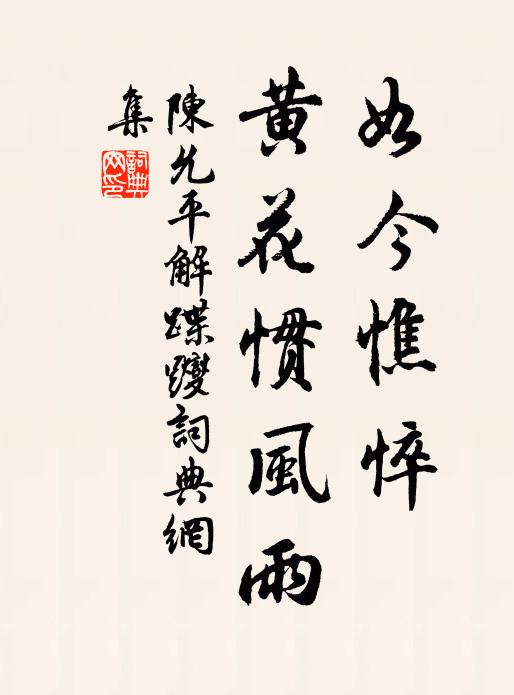 如今憔悴
黄花慣風雨
陳允平解蹀躞詞典網
集
詞典網印